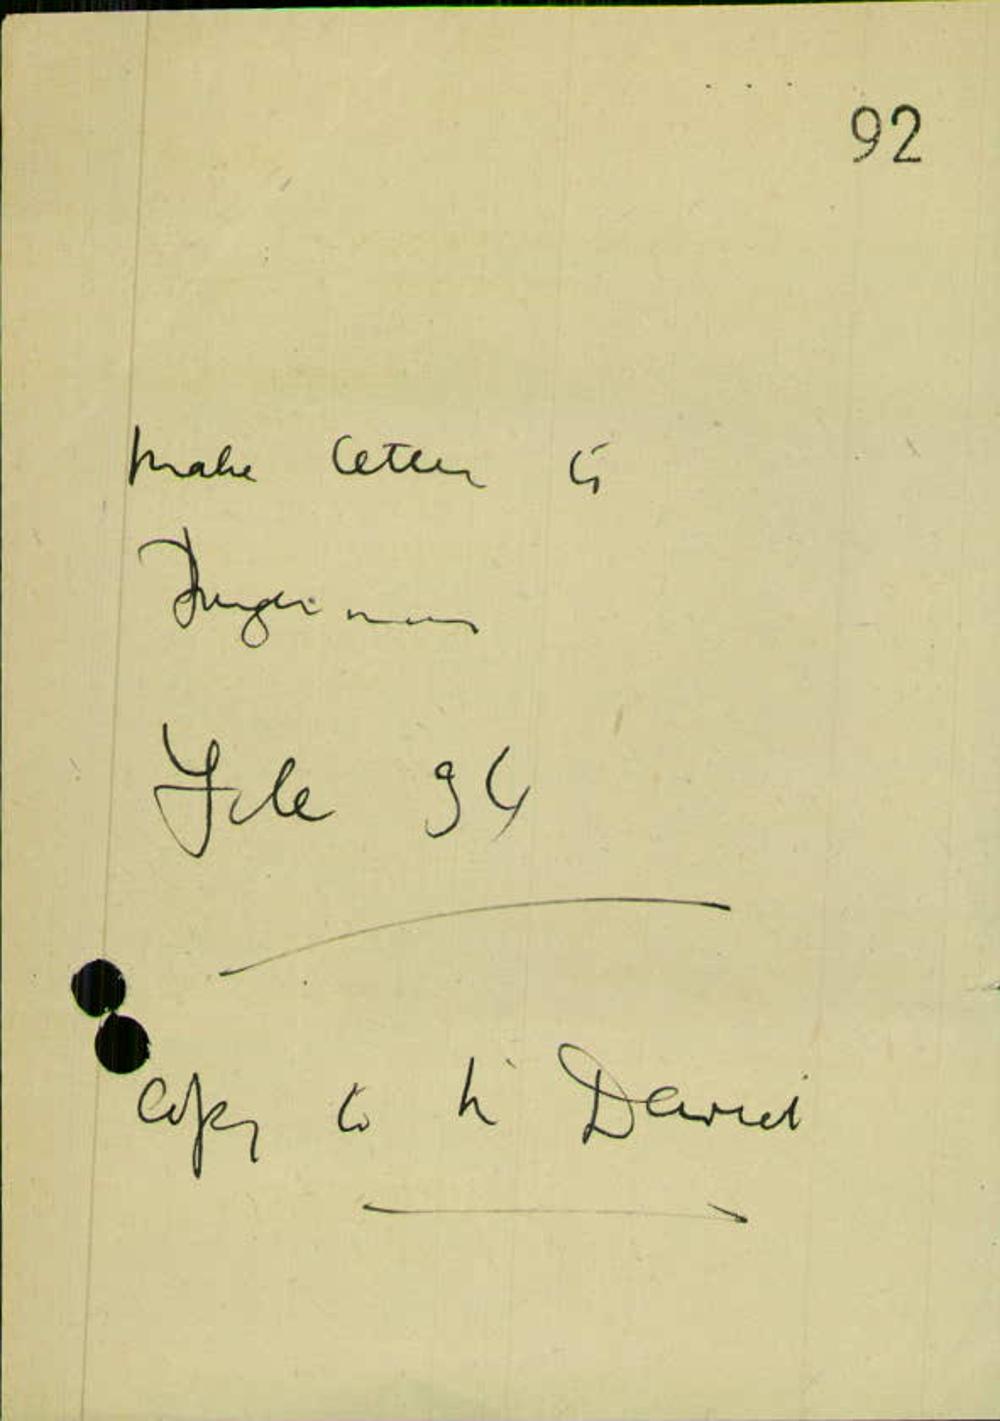 92
make letter to
File 94
Copy to Mr David